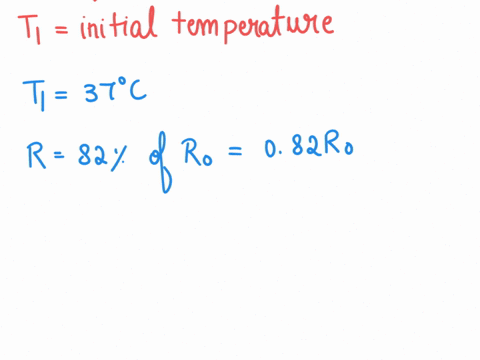 T₁ = initial temperature
T₁ = 37°C
R = 82% of R₀ = 0.82R₀